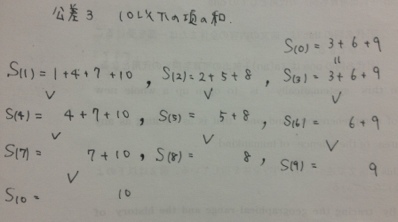 公差3 10以下の項の和.
S(0) = 3+6+9
S(1) = 1+4+7+10, S(2) = 2+5+8, S(3) = 3+6+9
S(4) = 4+7+10, S(5) = 5+8, S(6) = 6+9
S(7) = 7+10, S(8) = 8, S(9) = 9
S(10 = 10